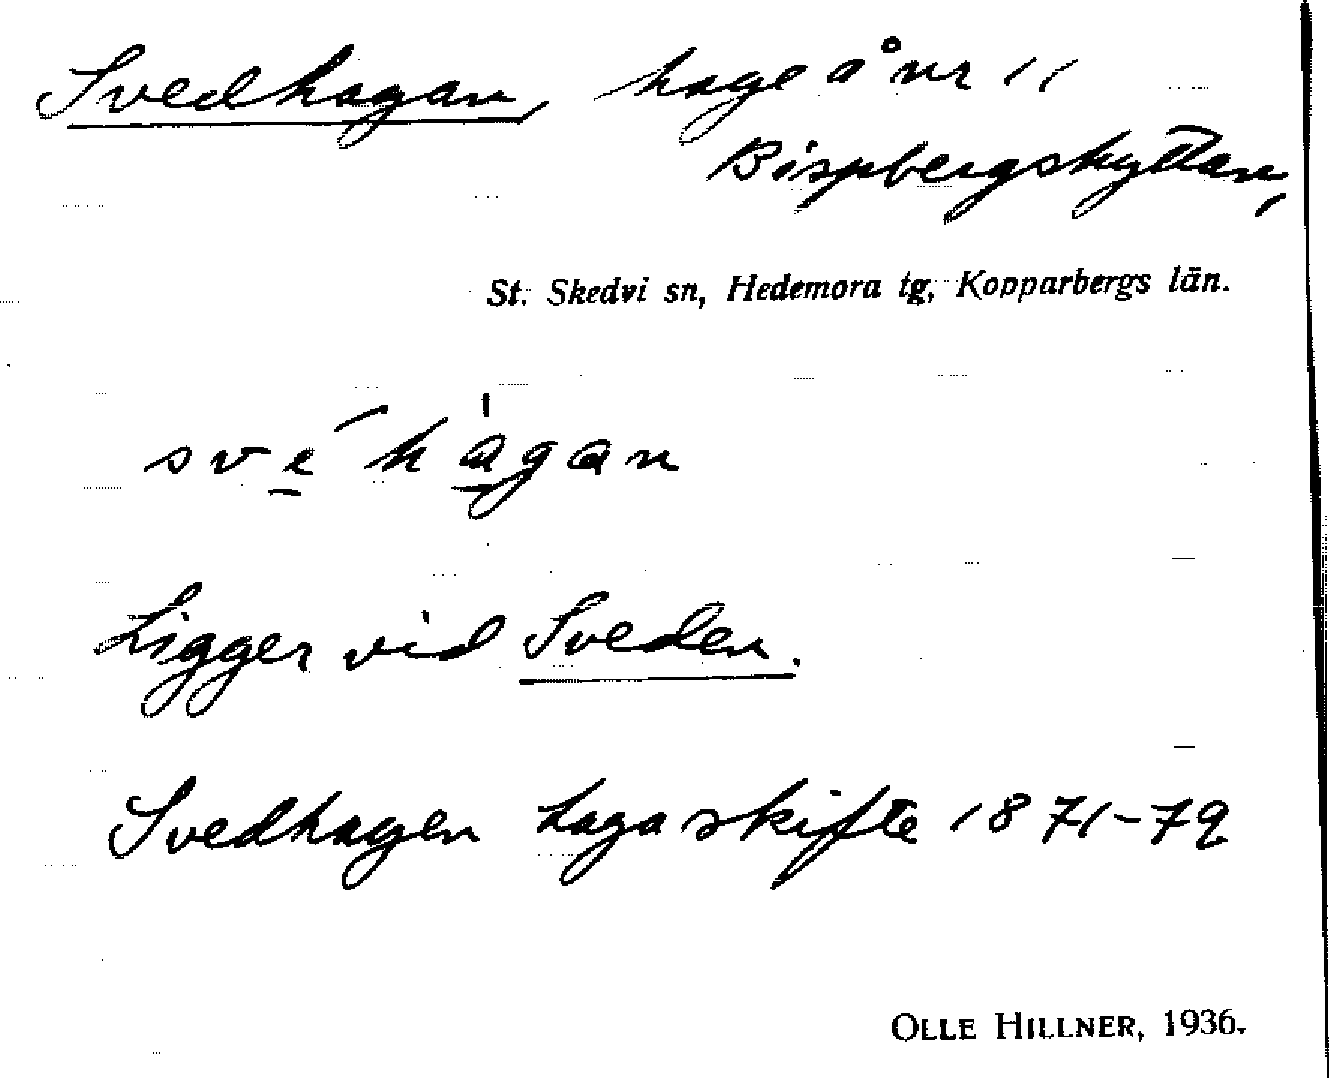 Svedhagan, hage å nr 11
Bispbergshyttan,
St. Skedvi sn, Hedemora tg, Kopparbergs län.
sve´hágan
Ligger vid Sveden.
Svedhagen Laga skifte 1871-79
OLLE HILLNER, 1936.